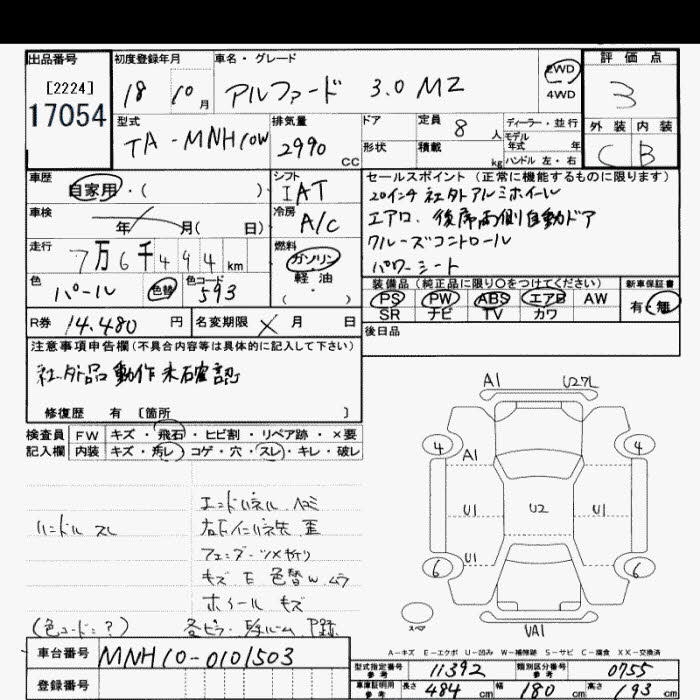 出品番号 初度登録年月 車名・グレード 評価点
[2224]
17054
18 10月 アルファード 3.0 MZ
2WD
4WD
3
型式 排気量 ドア 定員 8人 ディーラー・並行
TA-MNH10W 2990 CC
形状 積載 kg
モデル年式 年
ハンドル 左・右
外装 内装
C B
車歴 シフト セールスポイント (正常に機能するものに限ります)
自家用・( ) IAT
20インチ社外アルミホイール
車検 年 月( 日) 冷房 A/C
エアロ、後席両側自動ドア
走行 7万6千494km 燃料 ガソリン
クルーズコントロール
軽油
・( )
パワーシート
色 パール 色替 色コード 593
装備品 (純正品に限り○をつけてください) 新車保証書
PS PW ABS エアB AW 有・無
SR ナビ TV カワ
R券 14.480円 名変期限 × 月 日
後日品
注意事項申告欄(不具合内容等は具体的に記入して下さい)
社外品動作未確認
修復歴 有 [箇所 ]
検査員 FW キズ・飛石・ヒビ割・リペア跡・×要
記入欄 内装 キズ・汚レ・コゲ・穴・スレ・キレ・破レ
A1 U27L
4 A1 4
U1 U2 U1
U1
6 6
スペア VA1
エンドパネル 凹ミ
ハンドル スレ
キズ E 色替w ムラ
ホイール キズ
(色コード:?)
A-キズ E-エクボ U-凹み W-補修跡 S-サビ C-腐食 XX-交換済
車台番号 MNH10-0101503
登録番号
型式指定番号 参考 11392 類別区分番号 参考 0755
車庫証明用 参考 長さ 484cm 幅 180cm 高さ 193cm